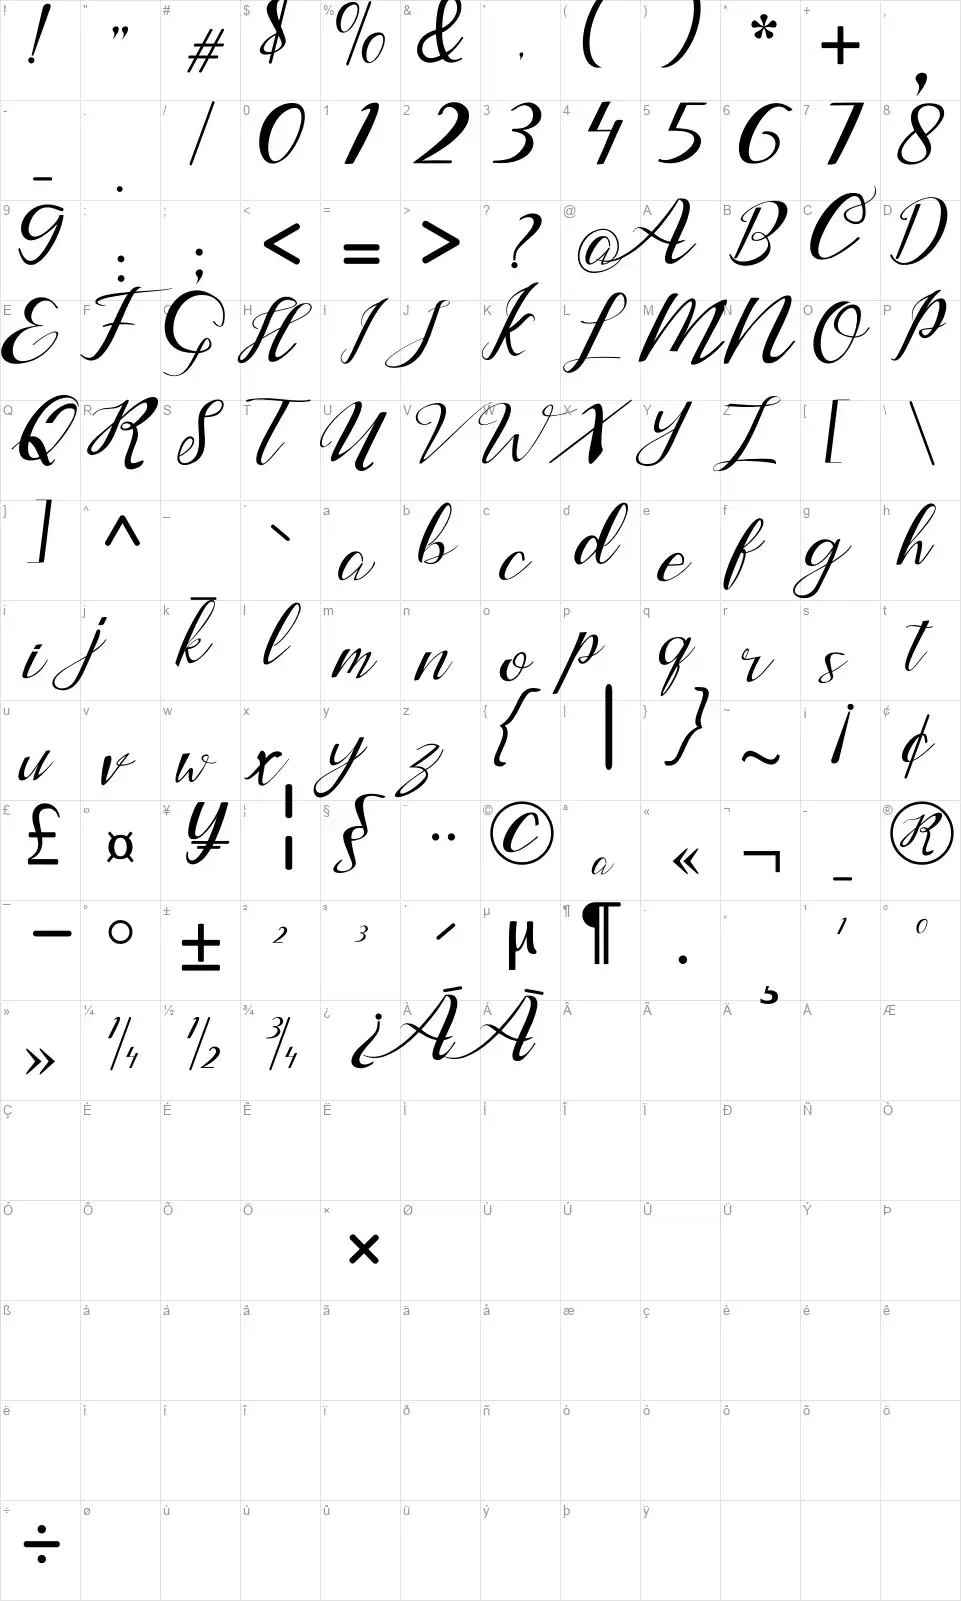 ! " # $ % & ' ( ) * + ,
! " # $ % & ' ( ) * + ,
- . / 0 1 2 3 4 5 6 7 8
- . / 0 1 2 3 4 5 6 7 8
9 : ; < = > ? @ A B C D
9 : ; < = > ? @ A B C D
E F G H I J K L M N O P
E F G H I J K L M N O P
Q R S T U V W X Y Z [ \
Q R S T U V W X Y Z [ \
] ^ _ ` a b c d e f g h
] ^ _ ` a b c d e f g h
i j k l m n o p q r s t
i j k l m n o p q r s t
u v w x y z { | } ~ ¡ ¢
u v w x y z { | } ~ ¡ ¢
£ ¤ ¥ ¦ § ¨ © ª « ¬ - ®
£ ¤ ¥ ¦ § ¨ © ª « ¬ - ®
¯ ° ± ² ³ ´ µ ¶ · ¸ ¹ º
¯ ° ± ² ³ ´ µ ¶ · ¸ ¹ º
» ¼ ½ ¾ ¿ À Á Â Ã Ä Å Æ
» ¼ ½ ¾ ¿ À Á
Ç È É Ê Ë Ì Í Î Ï Ð Ñ Ò
Ó Ô Õ Ö × Ø Ù Ú Û Ü Ý Þ
×
ß à á â ã ä å æ ç è é ê
ë ì í î ï ð ñ ò ó ô õ ö
÷ ø ù ú û ü ý þ ÿ
÷